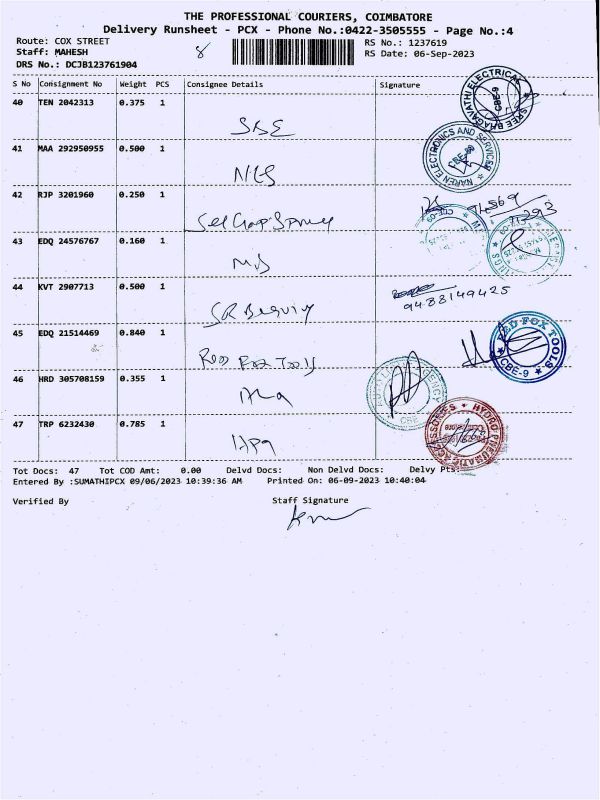 THE PROFESSIONAL COURIERS, COIMBATORE
Delivery Runsheet - PCX - Phone No.:0422-3505555 - Page No.:4
Route: COX STREET
RS No.: 1237619
Staff: MAHESH
8
RS Date: 06-Sep-2023
DRS No.: DCJB123761904
S No Consignment No Weight PCS Consignee Details Signature
40 TEN 2042313 0.375 1
SBE
SREE BHAGAVATHI ELECTRICAL
CBE-9
41 MAA 292950955 0.500 1
NES
NAREN ELECTRONICS AND SERVICES
42 RJP 3201960 0.250 1
43 EDQ 24576767 0.160 1
44 KVT 2907713 0.500 1
9488149425
45 EDQ 21514469 0.840 1
Red Fox Tools
RED FOX TOOLS
CBE-9
46 HRD 305708159 0.355 1
CBE
47 TRP 6232430 0.785 1
HPA
HYDRO PNEUMATIC ACCESSORIES
Tot Docs: 47 Tot COD Amt: 0.00 Delvd Docs: Non Delvd Docs: Delvy Pts:
Entered By :SUMATHIPCX 09/06/2023 10:39:36 AM Printed On: 06-09-2023 10:40:04
Verified By Staff Signature